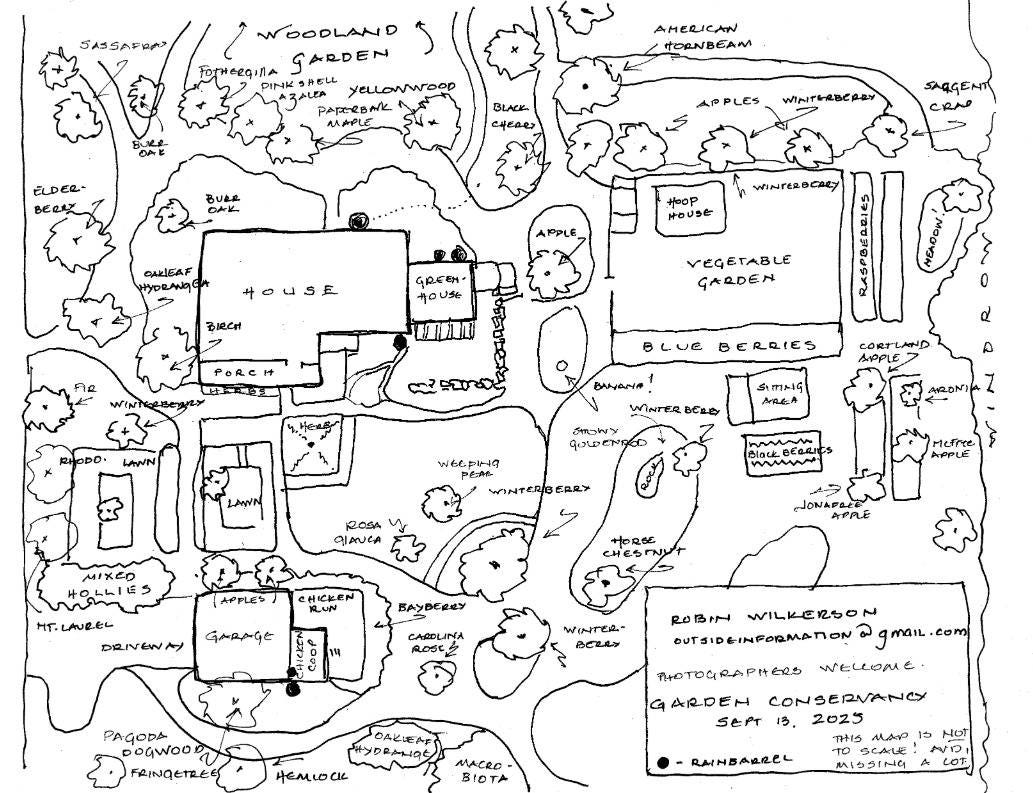 WOODLAND
GARDEN
SASSAFRAS
FOTHERGILLA
PINKSHELL
AZALEA
PAPERBARK
MAPLE
YELLOWWOOD
BLACK
CHERRY
AMERICAN
HORNBEAM
APPLES
WINTERBERRY
SARGENT
CRAB
BURR
OAK
ELDER-
BERRY
BURR
OAK
WINTERBERRY
HOOP
HOUSE
RASPBERRIES
MEADOW!
APPLE
VEGETABLE
GARDEN
OAKLEAF
HYDRANGEA
HOUSE
GREEN-
HOUSE
BIRCH
PORCH
HERBS
BLUE BERRIES
CORTLAND
APPLE
FIR
WINTERBERRY
BANANA!
SITTING
AREA
ARONIA
HERB
WINTERBERRY
SHOWY
GOLDENROD
BLACK BERRIES
MCFREE
APPLE
RHODO.
LAWN
LAWN
WEEPING
PEAR
WINTERBERRY
ROCK
JONAFREE
APPLE
ROSA
GLAUCA
HORSE
CHESTNUT
MIXED
HOLLIES
(APPLES)
CHICKEN
RUN
BAYBERRY
MT. LAUREL
GARAGE
CHICKEN
COOP
CAROLINA
ROSE
WINTER-
BERRY
DRIVEWAY
PAGODA
DOGWOOD
FRINGETREE
HEMLOCK
OAKLEAF
HYDRANGE
MACRO-
BIOTA
ROBIN WILKERSON
OUTSIDEINFORMATION@gmail.com
PHOTOGRAPHERS WELCOME.
GARDEN CONSERVANCY
SEPT 13, 2025
THIS MAP IS NOT
TO SCALE! AND,
MISSING A LOT
- RAINBARREL